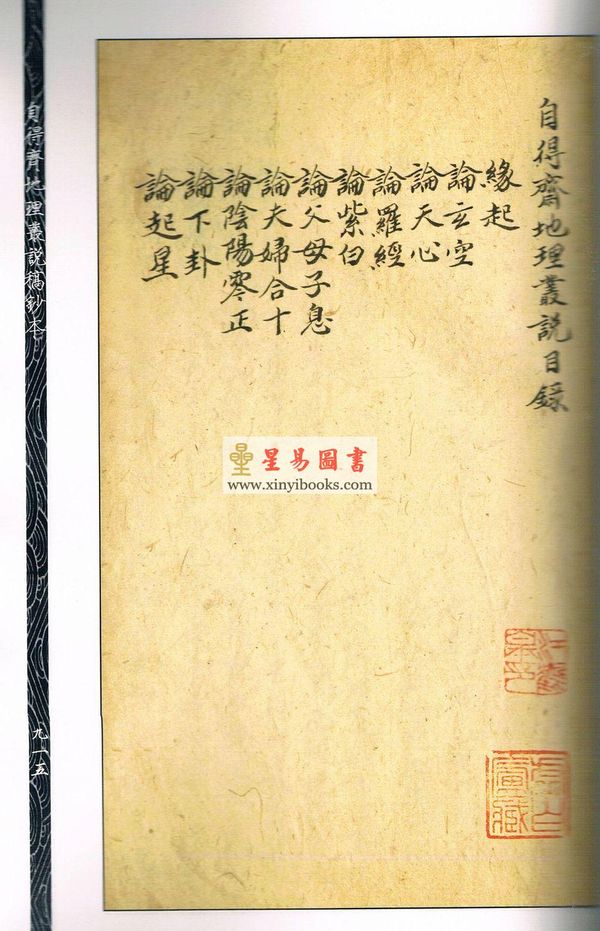 自得齋地理叢說目錄
緣起
論玄空
論天心
論羅經
論紫白
論父母子息
論夫婦合十
論陰陽零正
論下卦
論起星
自得齋地理叢說稿鈔本
九一五
星易圖書
www.xinyibooks.com